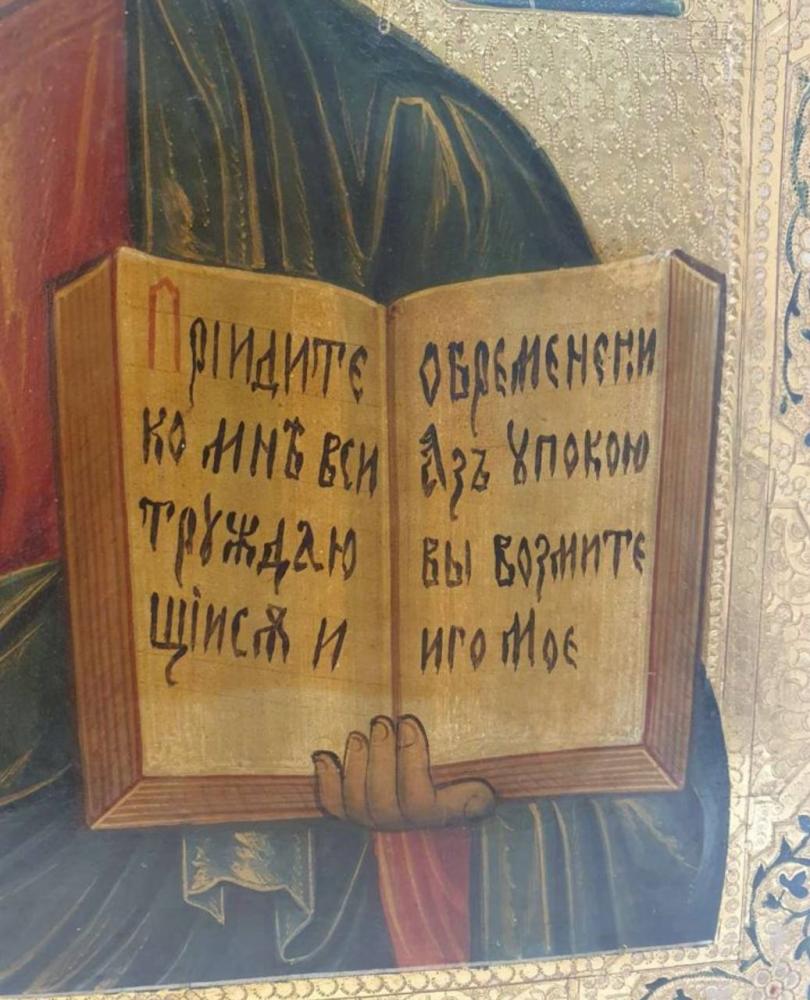 Прїидите
ко мнѣ вси
трꙋждаю
щїисѧ и
обременени
Азъ ꙋпокою
вы возмите
иго Мое